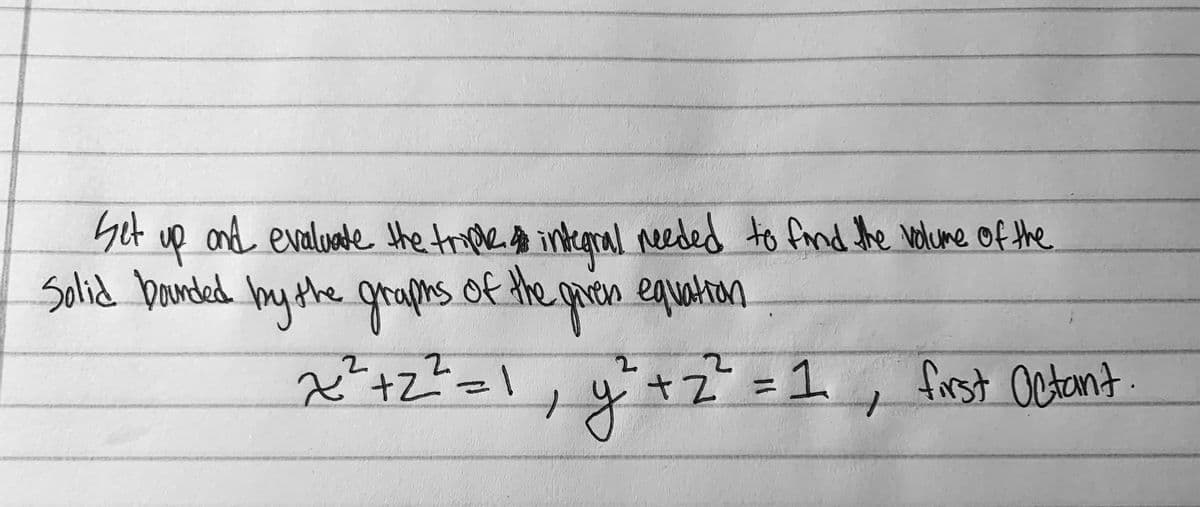 Set up and evaluate the triple integral needed to find the volume of the
Solid bounded by the graphs of the given equation
x²+z²=1, y²+z²=1, first Octant.